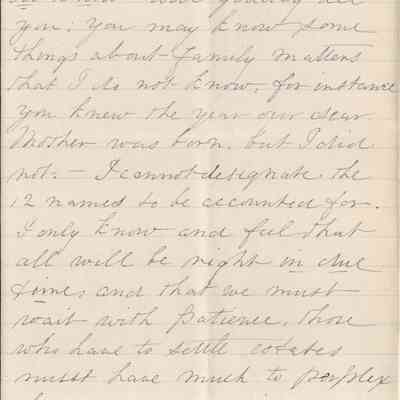 you; you may know some
things about family matters
that I do not know, for instance
you knew the year our dear
Mother was born, but I did
not:- I cannot designate the
12 named to be accounted for.
I only know and feel that
all will be right in due
time, and that we must
wait with patience, those
who have to settle estates
must have much to perplex